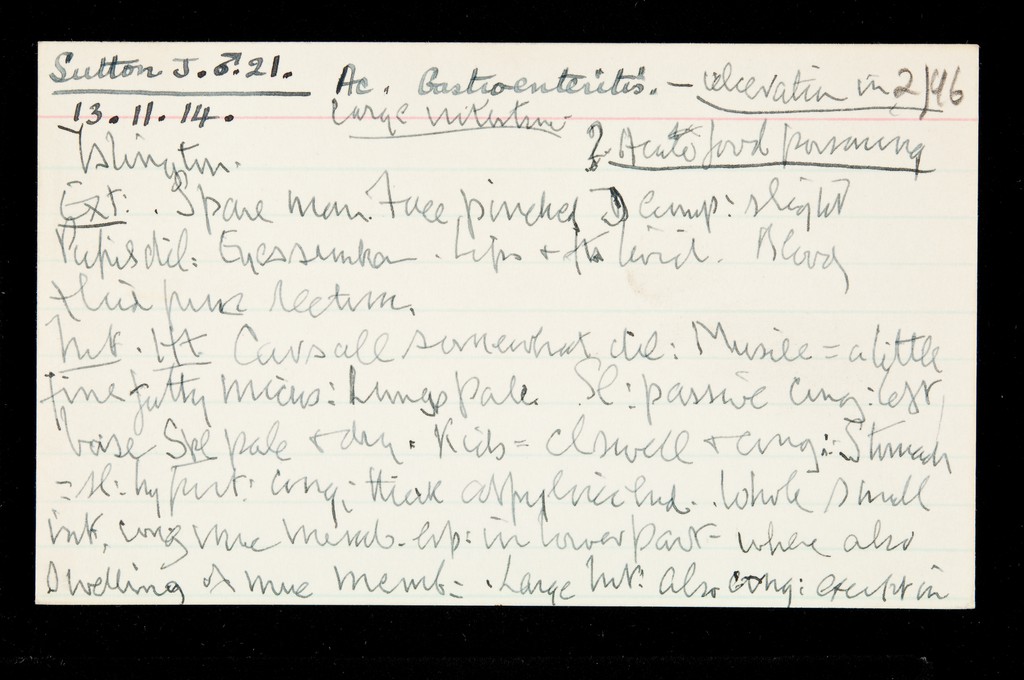 Sutton J. ♂. 21. Ac. Gastroenteritis. - ulceration in 2/46
13. 11. 14. Large intestine
Islington. ? Acute food poisoning
Ext: . Spare man. Face pinched. D comp: slight
Pupils dil: Eyes sunken. Lips + livid. Bloody
fluid from rectum.
Int. Ht Cavs all somewhat dil: Muscle = a little
fine fatty micros: Lungs pale. Sl: passive cong: left
base Spl pale + dry. Kids = cl swell + cong: Stomach
= sl: hypert: cong: thick at pyloric end. Whole small
int, cong muc memb. esp: in lower part - where also
swelling of muc memb = . Large Int: also cong: except in